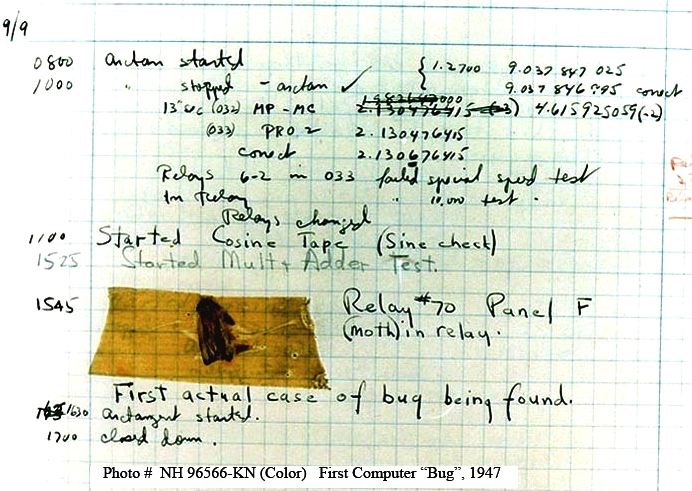 9/9
0800 antan started { 1.2700 9.037 847 025
1000 " stopped - antan ✓ 9.037 846 995 correct
13" uc (032) MP - MC 2.130476415 (-3) 4.615925059 (-2)
(033) PRO 2 2.130476415
correct 2.130676415
Relays 6-2 in 033 failed special speed test
In Relay " 10.000 test.
Relays changed
1100 Started Cosine Tape (Sine check)
1525 Started Mult + Adder Test.
1545 Relay #70 Panel F
(moth) in relay.
First actual case of bug being found.
1630 antangent started.
1700 closed down.
Photo # NH 96566-KN (Color) First Computer “Bug”, 1947